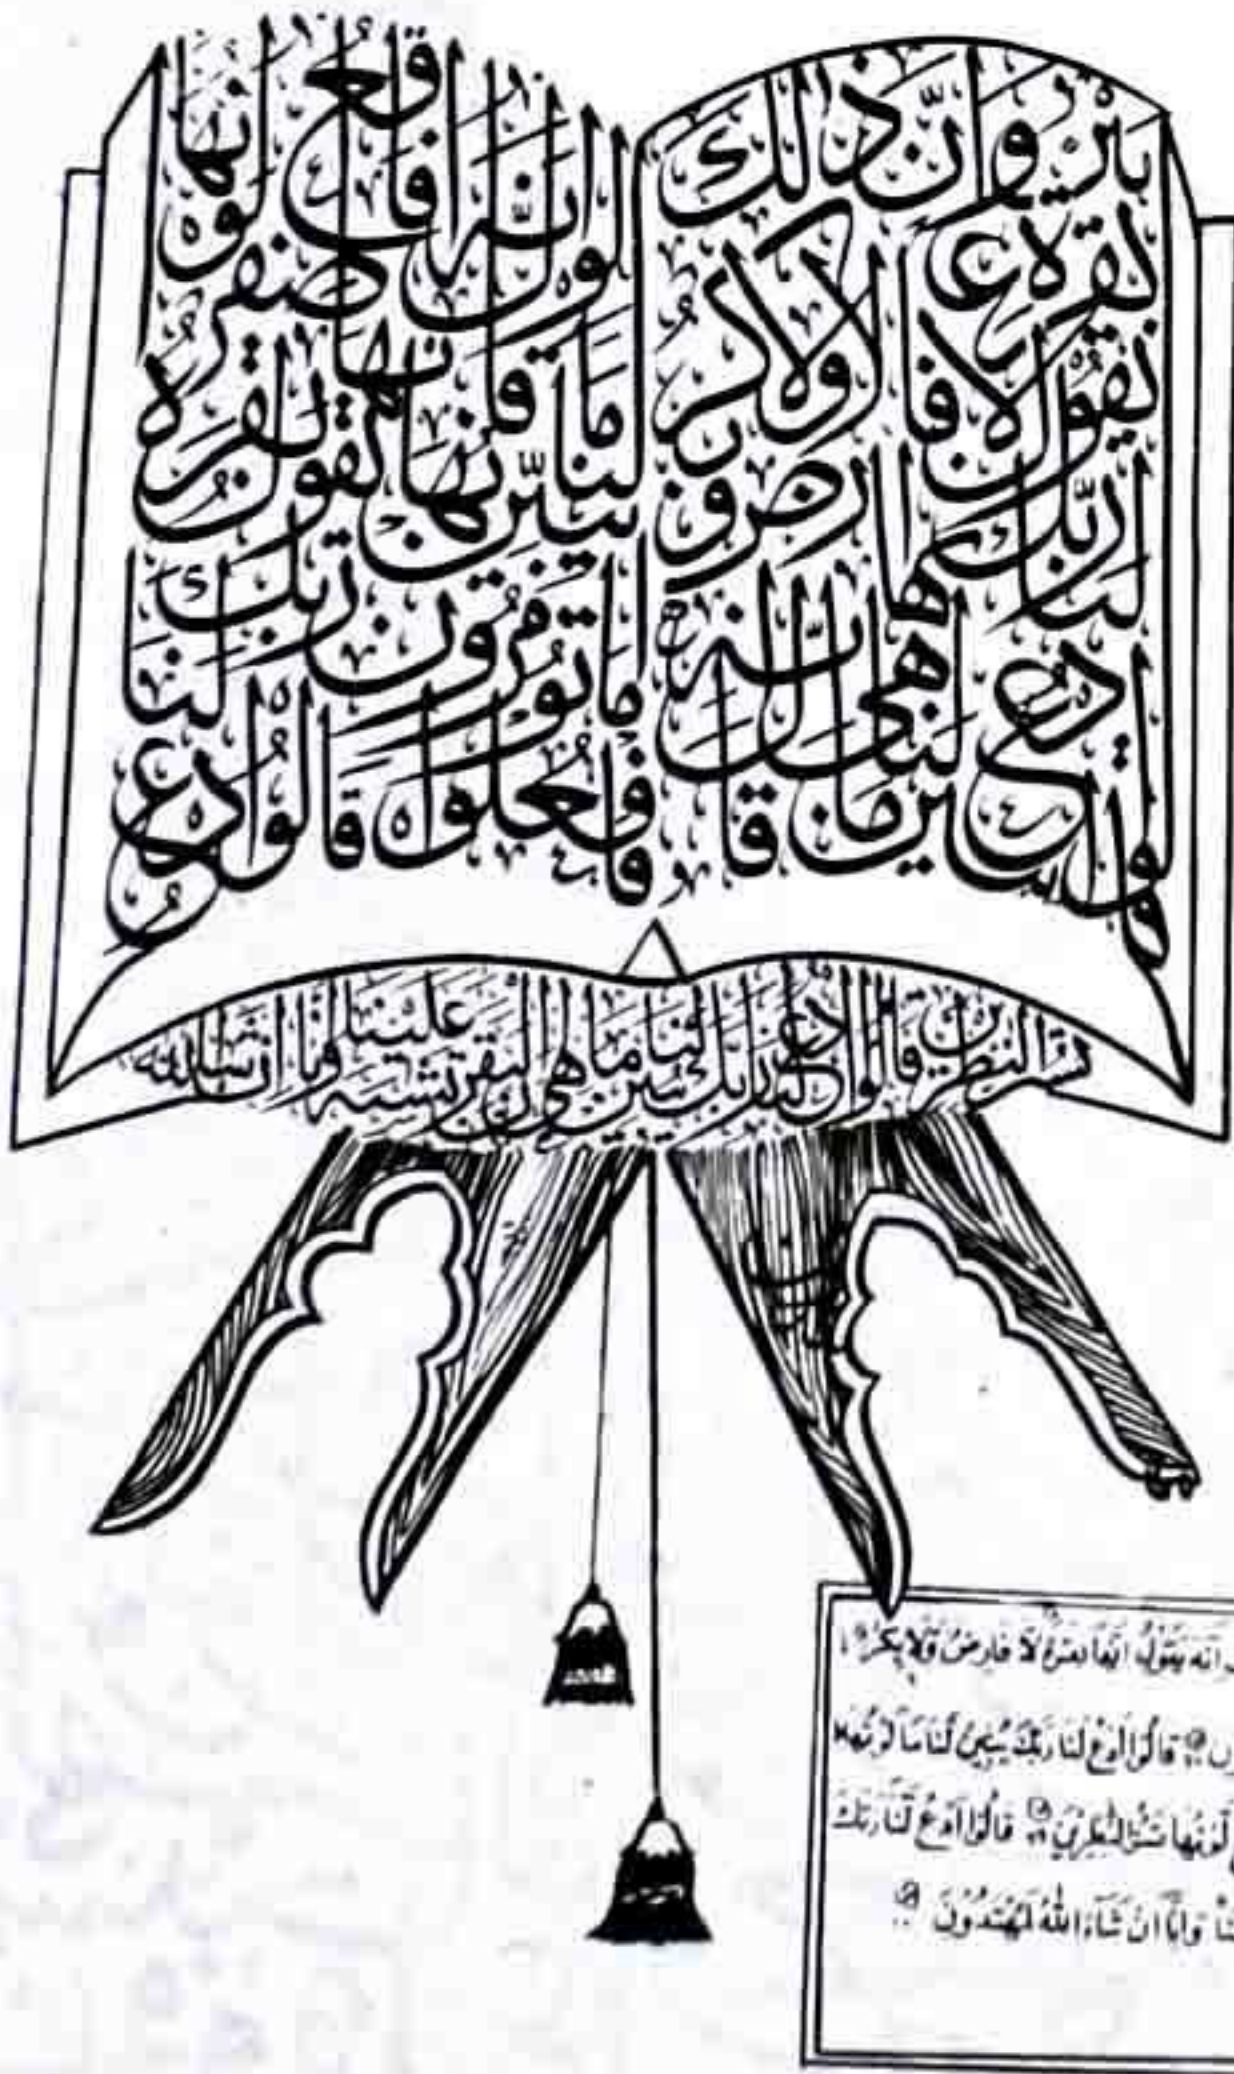 قالوا ادع لنا ربك يبين لنا ما هي قال انه يقول انها بقرة لا فارض ولا بكر عوان بين ذلك
فافعلوا ما تؤمرون قالوا ادع لنا ربك يبين لنا ما لونها قال انه يقول انها بقرة صفراء فاقع لونها
تسر النظرين قالوا ادع لنا ربك يبين لنا ما هي ان البقر تشبه علينا وانا ان شاء الله
انه يَقُولُ اِنَّهَا بَقَرَةٌ لَا فَارِضٌ وَّلَا بِكْرٌ
قَالُوا ادْعُ لَنَا رَبَّكَ يُبَيِّنْ لَّنَا مَا لَوْنُهَا
لَّوْنُهَا تَسُرُّ النّٰظِرِيْنَ ۶۹ قَالُوا ادْعُ لَنَا رَبَّكَ
وَاِنَّا اِنْ شَآءَ اللّٰهُ لَمُهْتَدُوْنَ ۷۰